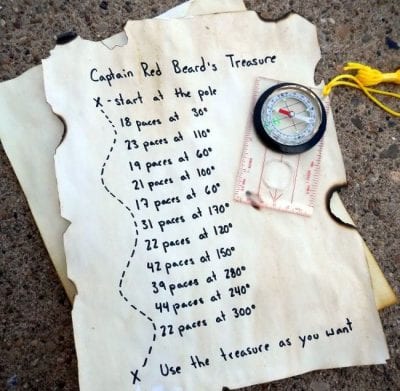 Captain Red Beard's Treasure
X - start at the pole
18 paces at 30°
23 paces at 110°
19 paces at 60°
21 paces at 100°
17 paces at 60°
31 paces at 170°
22 paces at 120°
42 paces at 150°
39 paces at 280°
44 paces at 240°
22 paces at 300°
X Use the treasure as you want